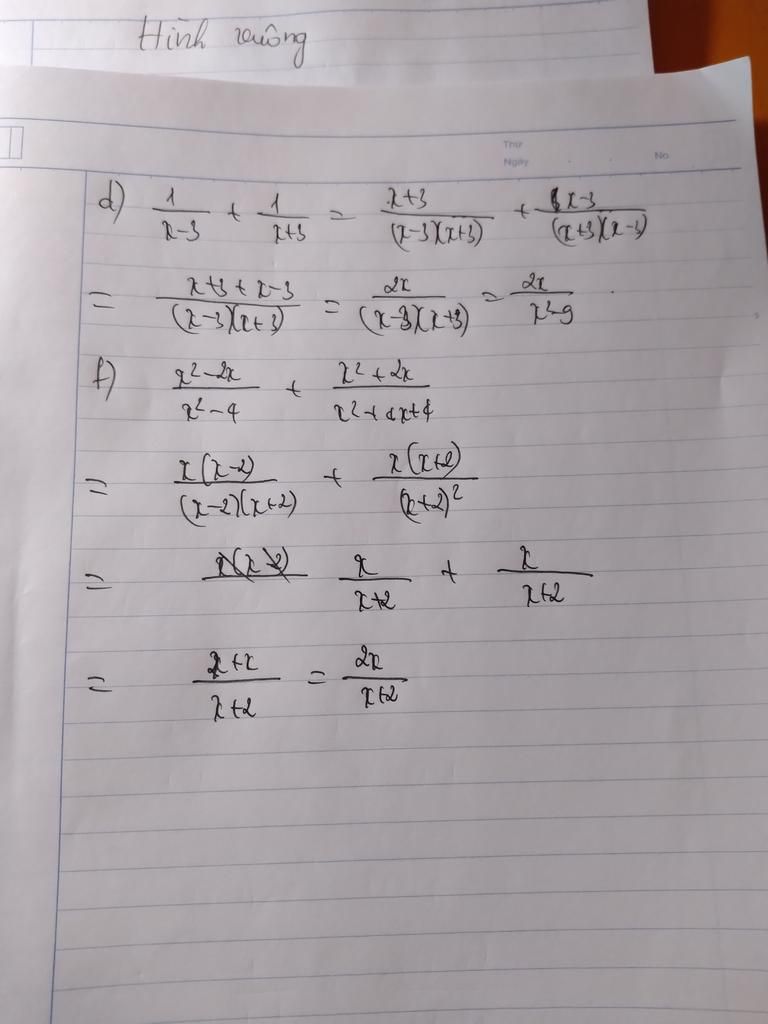 Hình vuông
Thứ
Ngày No.
d) 1/(x-3) + 1/(x+3) = (x+3)/((x-3)(x+3)) + (x-3)/((x+3)(x-3))
= (x+3+x-3)/((x-3)(x+3)) = 2x/((x-3)(x+3)) = 2x/(x²-9)
f) (x²-2x)/(x²-4) + (x²+2x)/(x²+4x+4)
= x(x-2)/((x-2)(x+2)) + x(x+2)/(x+2)²
= x/(x+2) + x/(x+2)
= (x+x)/(x+2) = 2x/(x+2)